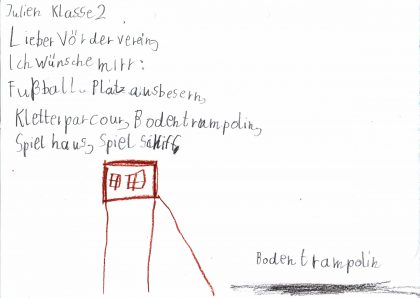 Julien Klasse 2
Lieber Vörderverein,
Ich wünsche mirr:
Fußball-Platz ausbesern,
Kletterparcour, Bodentrampolin,
Spielhaus, Spiel
Bodentrampolin